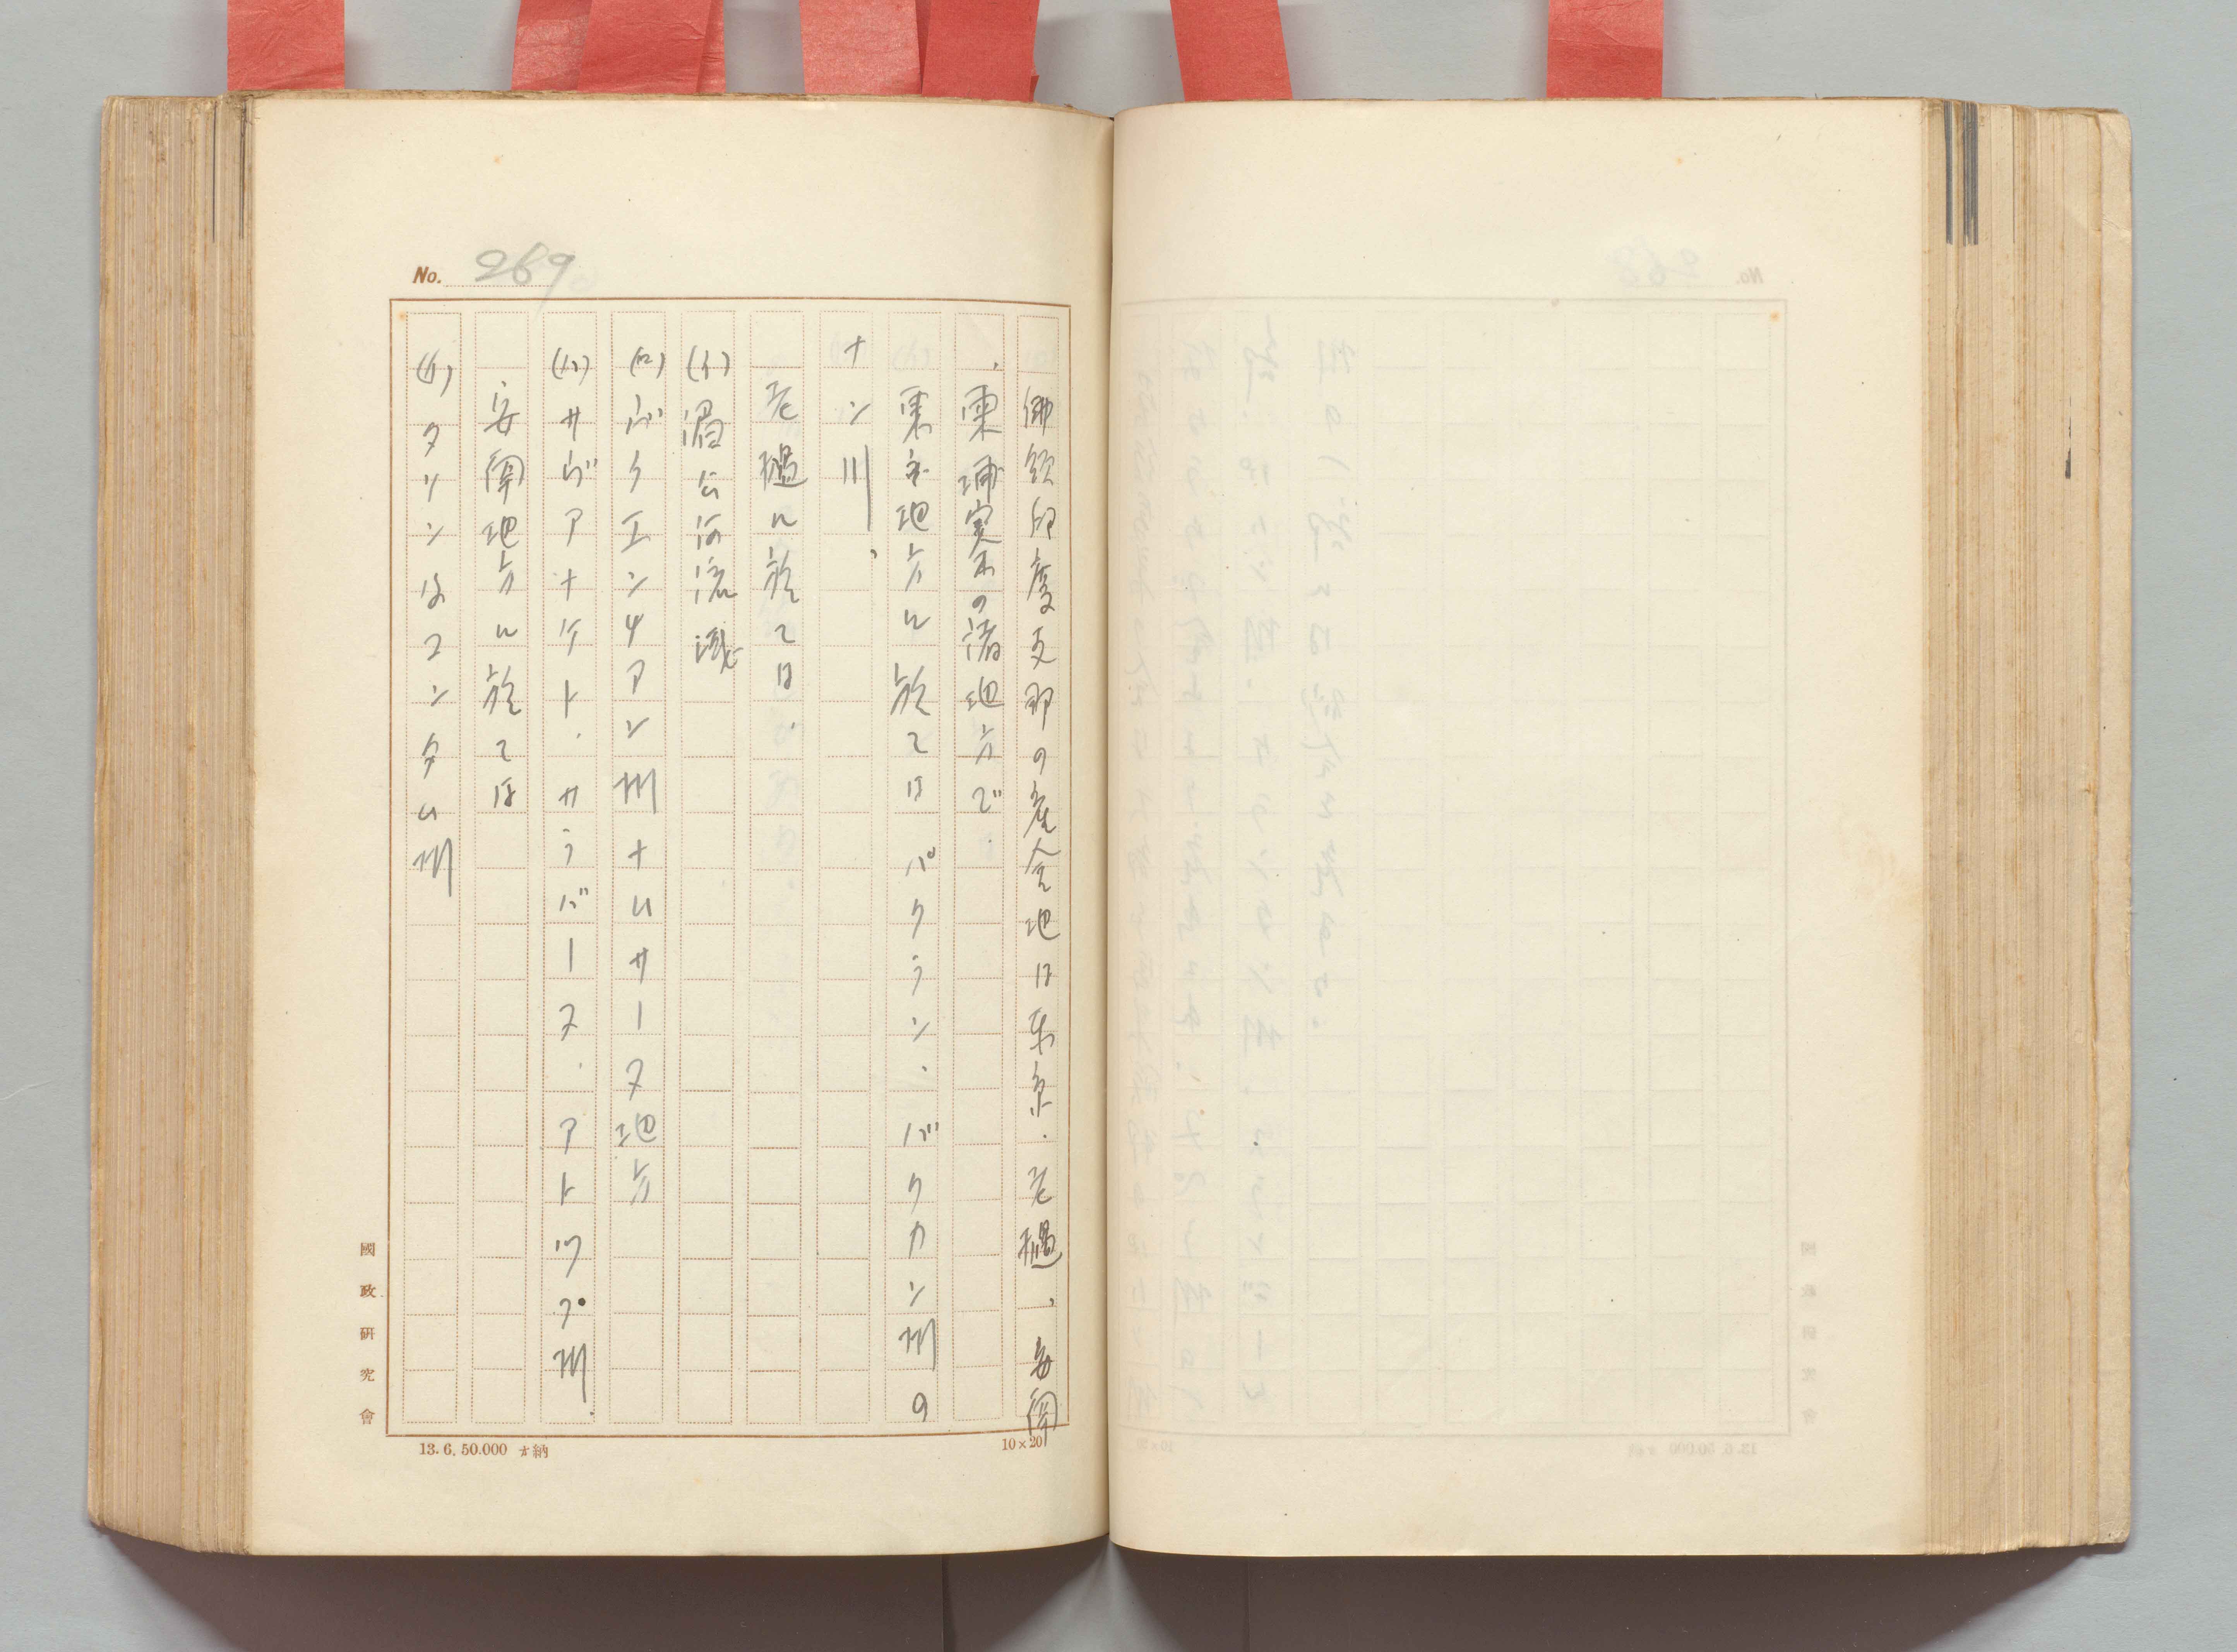 No. 269
佛領印度支那の産金地は東京．老檛、安南
、柬埔寨の諸地方で．
東京地方に於ては パクラン．バクカン州の
ナン川、
老檛に於ては．
(イ)湄公河流域
(ロ)ヴィエンチアン州ナムサーヌ地方
(ハ)サヴアナケト．サラバーヌ．アトツプ州．
安南地方に於ては
タソンはコンタム州
國政研究會
13. 6. 50.000 納
10×20